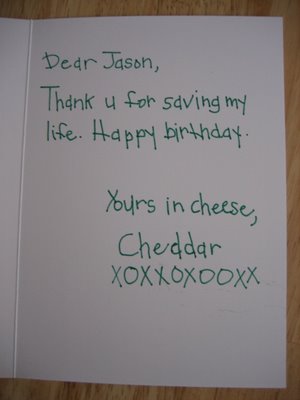 Dear Jason,
Thank u for saving my
life. Happy birthday.
Yours in cheese,
Cheddar
XOXXOXOOXX